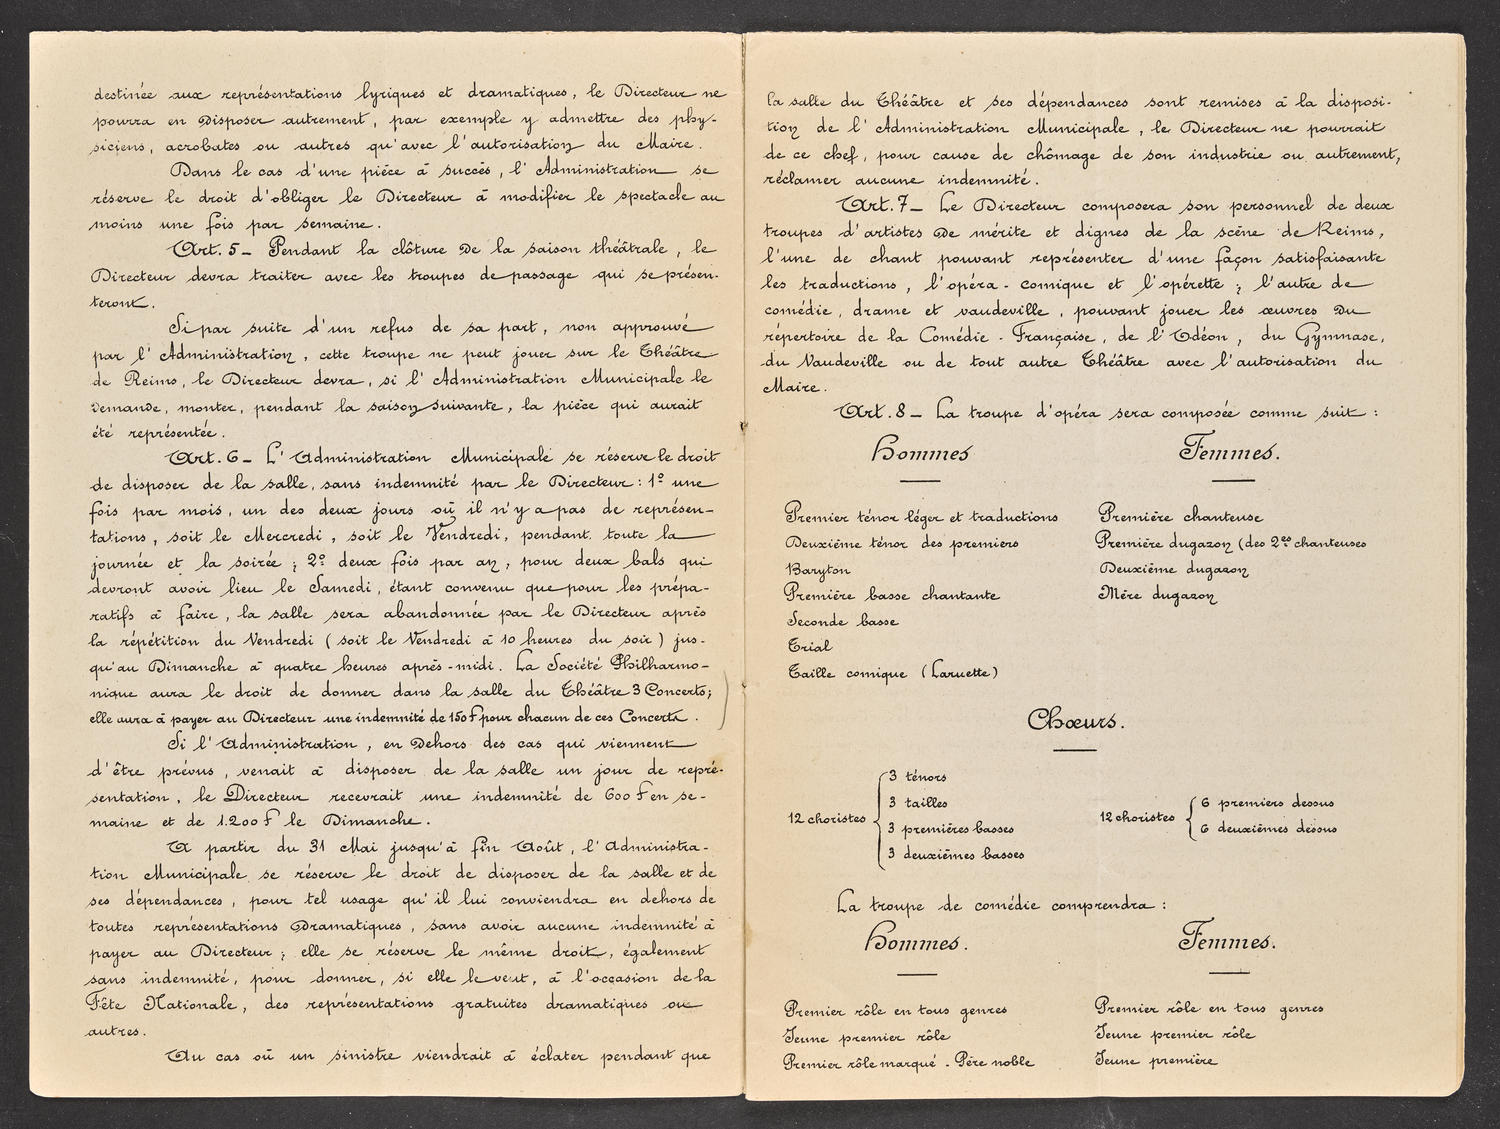 destinée aux représentations lyriques et dramatiques, le Directeur ne
pourra en Disposer autrement, par exemple y admettre des phy-
siciens, acrobates ou autres qu'avec l'autorisation du Maire.
Dans le cas d'une pièce à succès, l'Administration se
réserve le droit d'obliger le Directeur à modifier le spectacle au
moins une fois par semaine.
Art. 5 _ Pendant la clôture De la saison théâtrale, le
Directeur devra traiter avec les troupes de passage qui se présen-
teront.
Si par suite d'un refus de sa part, non approuvé
par l'Administration, cette troupe ne peut jouer sur le Théâtre
de Reims, le Directeur devra, si l'Administration Municipale le
Demande, monter, pendant la saison suivante, la pièce qui aurait
été représentée.
Art. 6 _ L'Administration Municipale se réserve le droit
de disposer de la salle, sans indemnité par le Directeur : 1º une
fois par mois, un des deux jours où il n'y a pas de représen-
tations, soit le Mercredi, soit le Vendredi, pendant toute la
journée et la soirée ; 2º deux fois par an, pour deux bals qui
devront avoir lieu le Samedi, étant convenu que pour les prépa-
ratifs à faire, la salle sera abandonnée par le Directeur après
la répétition du Vendredi (soit le Vendredi à 10 heures du soir) jus-
qu'au Dimanche à quatre heures après-midi. La Société Philharmo-
nique aura le droit de donner dans la salle du Théâtre 3 Concerts;
elle aura à payer au Directeur une indemnité de 150f pour chacun de ces Concerts.
Si l'Administration, en Dehors des cas qui viennent
d'être prévus, venait à disposer de la salle un jour de repré-
sentation, le Directeur recevrait une indemnité de 600 f en se-
maine et de 1.200 f le Dimanche.
A partir du 31 Mai jusqu'à fin Août, l'Administra-
tion Municipale se réserve le droit de disposer de la salle et de
ses dépendances, pour tel usage qu'il lui conviendra en dehors de
toutes représentations Dramatiques, sans avoir aucune indemnité à
payer au Directeur ; elle se réserve le même droit, également
sans indemnité, pour donner, si elle le veut, à l'occasion de la
Fête Nationale, des représentations gratuites dramatiques ou
autres.
Au cas où un sinistre viendrait à éclater pendant que
la salle du Théâtre et ses dépendances sont remises à la disposi-
tion de l'Administration Municipale, le Directeur ne pourrait
de ce chef, pour cause de chômage de son industrie ou autrement,
réclamer aucune indemnité.
Art. 7 _ Le Directeur composera son personnel de deux
troupes d'artistes De mérite et dignes de la scène de Reims,
l'une de chant pouvant représenter d'une façon satisfaisante
les traductions, l'opéra-comique et l'opérette ; l'autre de
comédie, drame et vaudeville, pouvant jouer les œuvres Du
répertoire de la Comédie-Française, de l'Odéon, du Gymnase,
du Vaudeville ou de tout autre Théâtre avec l'autorisation du
Maire.
Art. 8 _ La troupe d'opéra sera composée comme suit :
Hommes
Premier ténor léger et traductions
Deuxième ténor des premiers
Baryton
Première basse chantante
Seconde basse
Trial
Taille comique (Laruette)
Femmes.
Première chanteuse
Première dugazon (des 2es chanteuses
Deuxième dugazon
Mère dugazon
Chœurs.
12 choristes
3 ténors
3 tailles
3 premières basses
3 deuxièmes basses
12 choristes
6 premiers dessus
6 deuxièmes dessus
La troupe de comédie comprendra :
Hommes.
Premier rôle en tous genres
Jeune premier rôle
Premier rôle marqué . Père noble
Femmes.
Premier rôle en tous genres
Jeune premier rôle
Jeune première